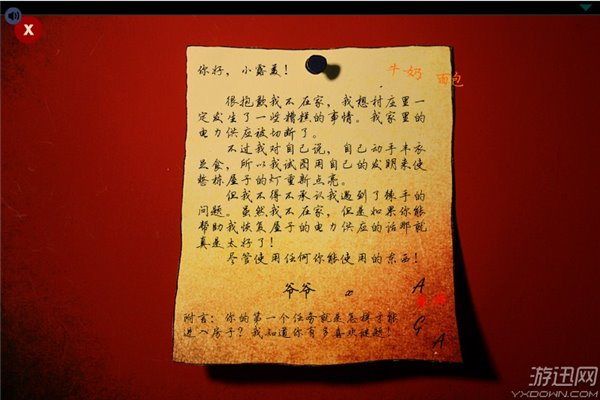 X
你好，小露美！
牛奶 面包
很抱歉我不在家，我想村庄里一
定发生了一些糟糕的事情。我家里的
电力供应被切断了。
不过我对自己说，自己动手丰衣
足食，所以我试图用自己的发明来使
整栋屋子的灯重新点亮。
但我不得不承认我遇到了棘手的
问题。虽然我不在家，但是如果你能
帮助我恢复屋子的电力供应的话那就
真是太好了！
尽管使用任何你能使用的东西！
爷爷 x
A
G
A
附言：你的第一个任务就是怎样才能
进入房子？我知道你有多喜欢谜题！
游迅网
YXDOWN.COM